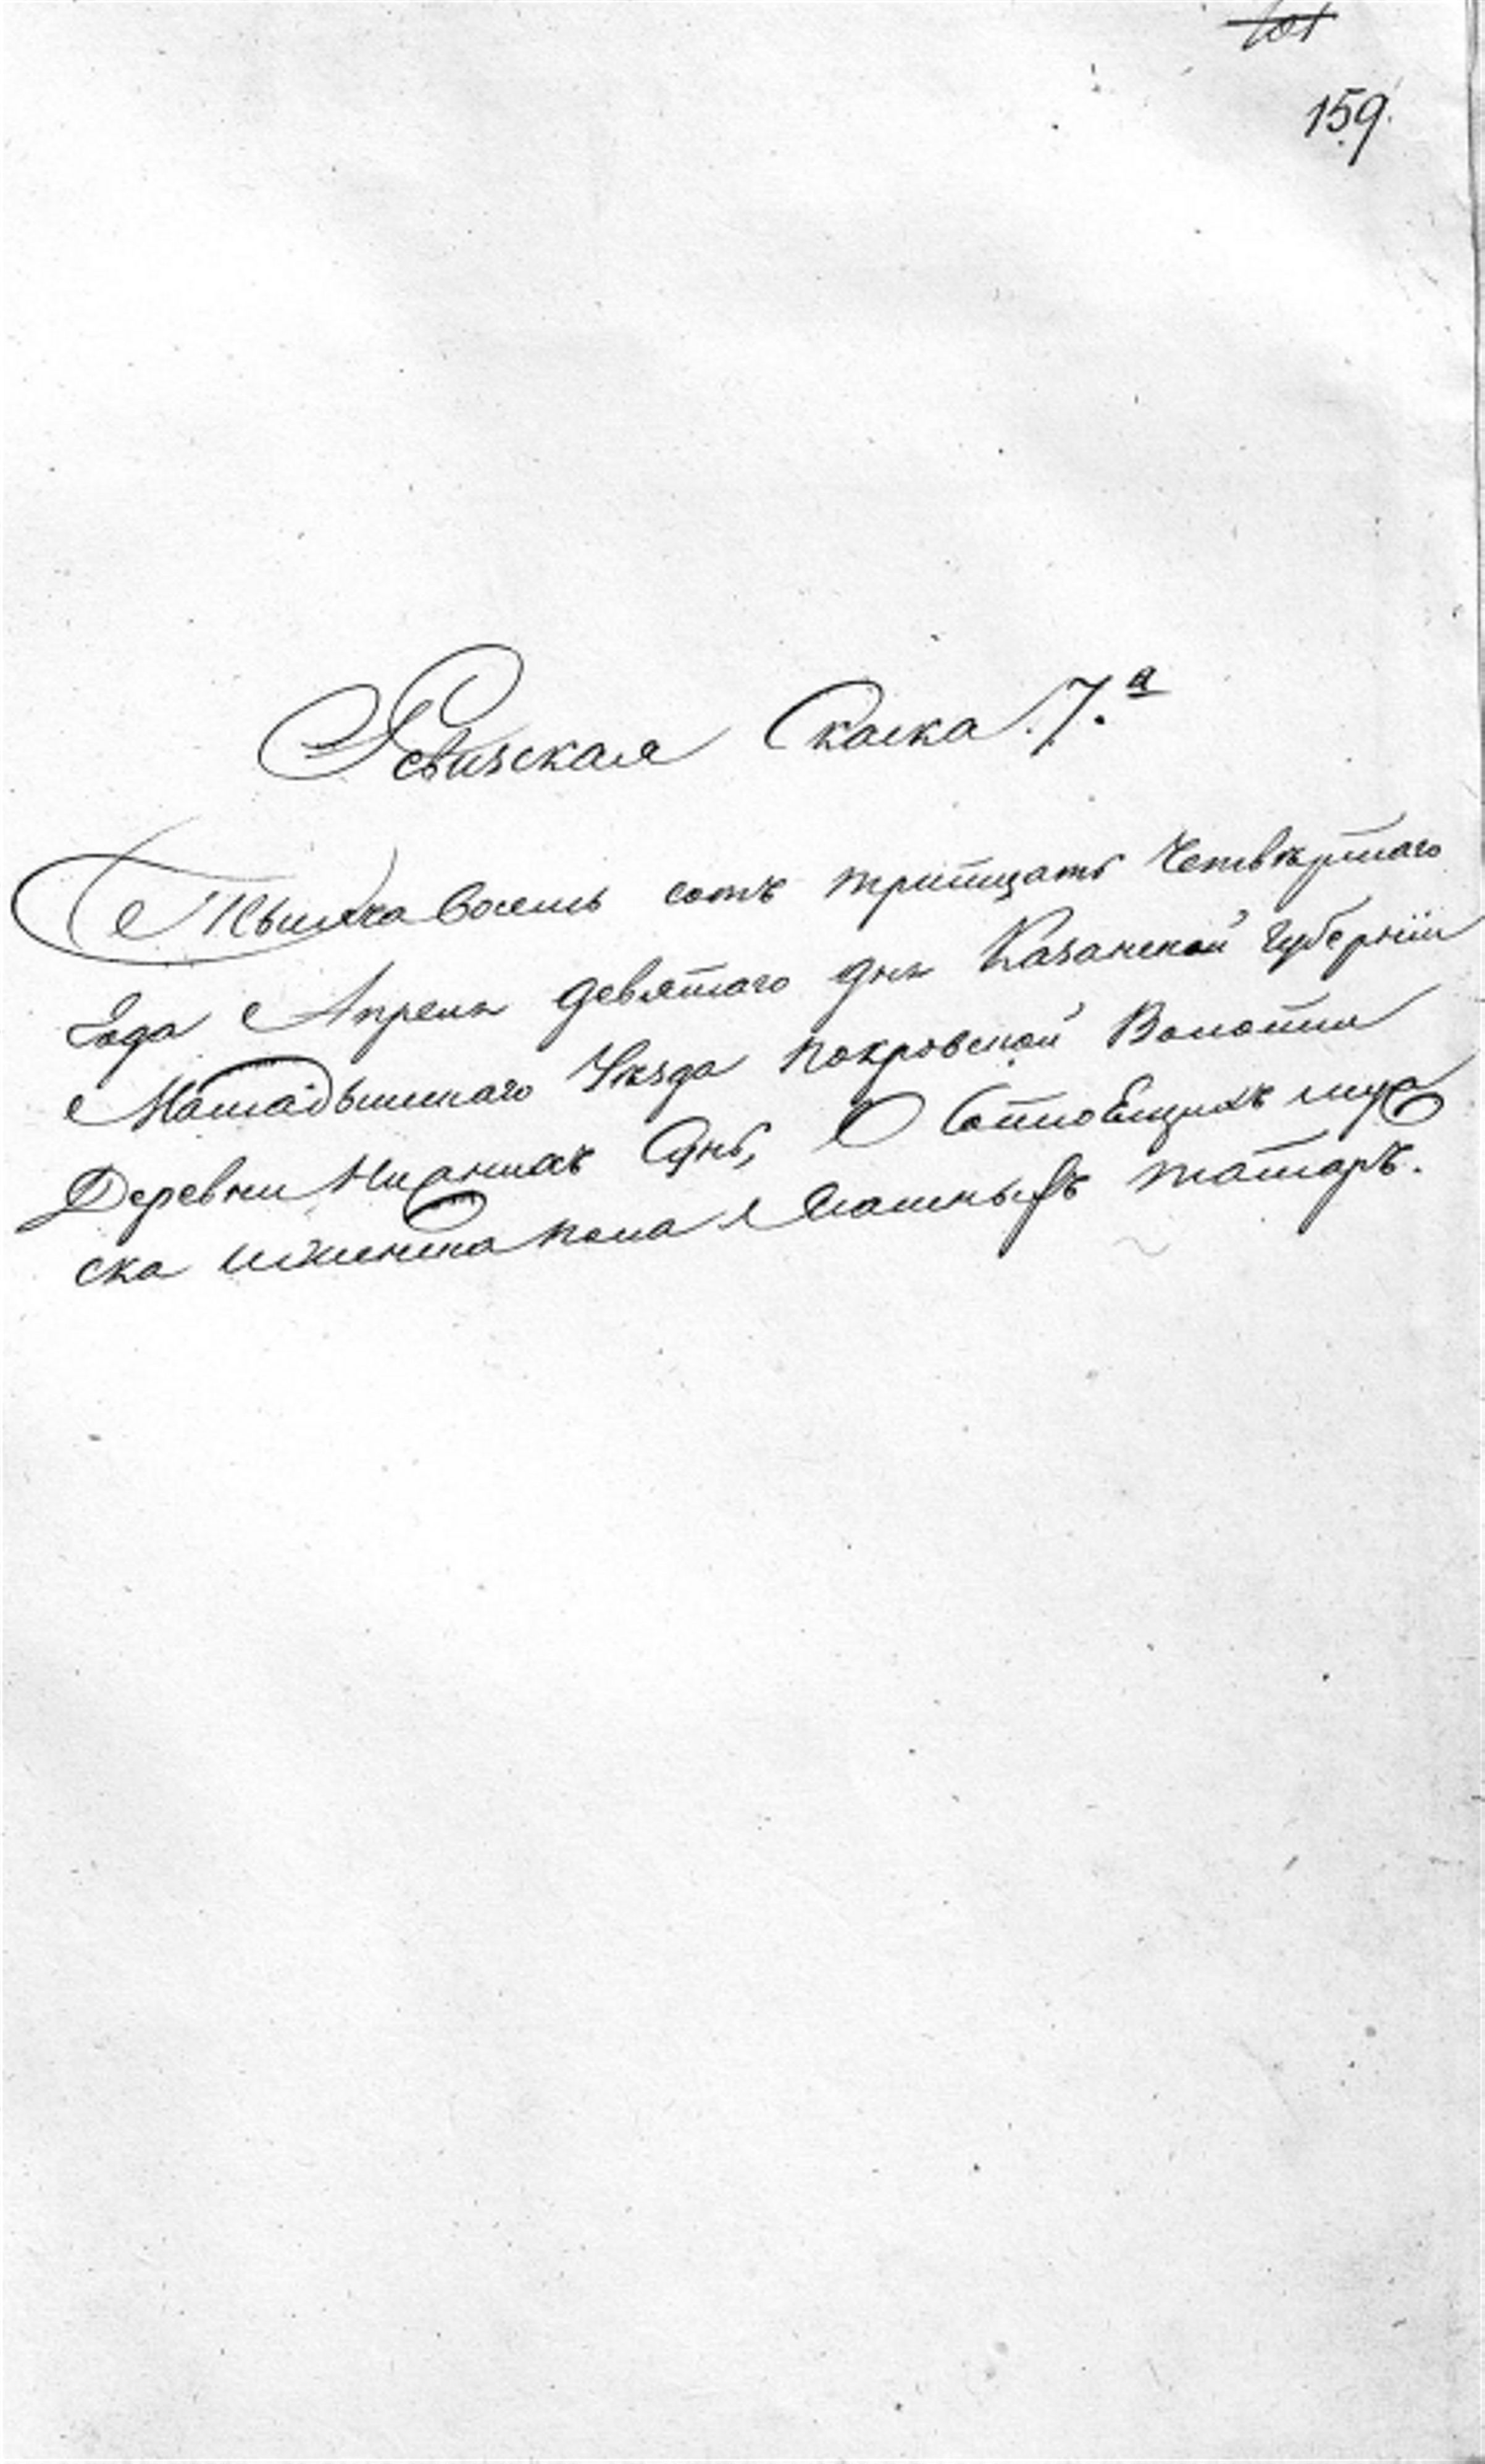 101
159.
Ревизская Скаска. 7.а
Тысяча восемь сотъ тритцать Четвѣртаго
Года Апреля девятаго дня Казанской губерніи
Мамадышскаго Уѣзда покровской Волости
Деревни Нирписъ О Состоящихъ муже
ска иженска пола Ясашныхъ татаръ.